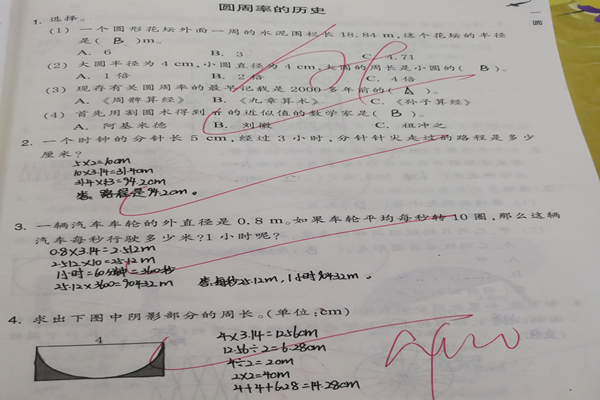 圆周率的历史
1. 选择。
(1) 一个圆形花坛外面一周的水泥围栏长18.84m,这个花坛的半径
是( B )m。
A. 6 B. 3 C. 4.71
(2) 大圆半径为4cm,小圆直径为4cm,大圆的周长是小圆的( B )。
A. 1倍 B. 2倍 C. 4倍
(3) 现存有关圆周率的最早记载是2000多年前的( A )。
A. 《周髀算经》 B. 《九章算术》 C. 《孙子算经》
(4) 首先用割圆术得到π的近似值的数学家是( B )。
A. 阿基米德 B. 刘徽 C. 祖冲之
2. 一个时钟的分针长5cm,经过3小时,分针针尖走过的路程是多少
厘米?
5×2=10cm
10×3.14=31.4cm
31.4×3=94.2cm
答:路程是94.2cm。
3. 一辆汽车车轮的外直径是0.8m。如果车轮平均每秒转10圈,那么这辆
汽车每秒行驶多少米?1小时呢?
0.8×3.14=2.512m
2.512×10=25.12m
1小时=60分钟=3600秒
25.12×3600=90432m 答:每秒25.12m,1小时90432m。
4. 求出下图中阴影部分的周长。(单位:cm)
4
4×3.14=12.56cm
12.56÷2=6.28cm
4÷2=2cm
2×2=4cm
4+4+6.28=14.28cm